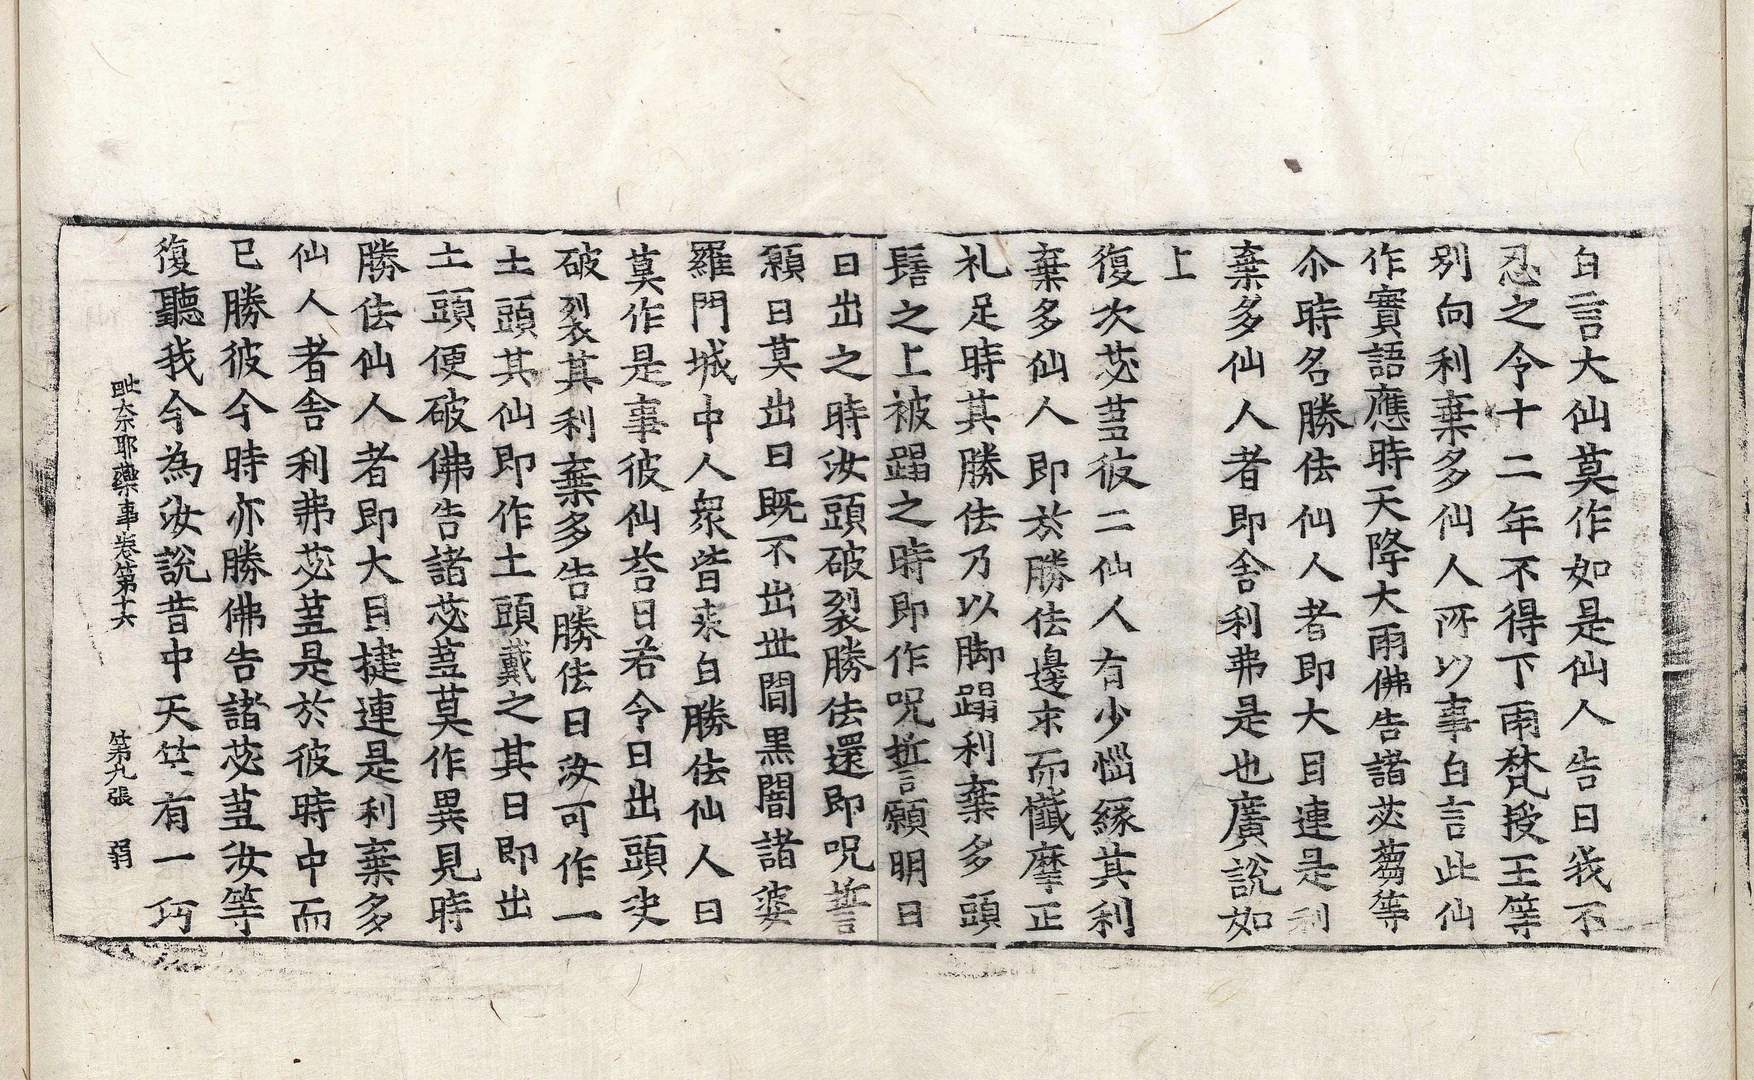 白言大仙莫作如是仙人告曰我不
忍之令十二年不得下雨梵授王等
别向利棄多仙人所以事白言此仙
作實語應時天降大雨佛告諸苾蒭等
尒時名勝佉仙人者即大目連是利
棄多仙人者即舍利弗是也廣說如
上
復次苾蒭彼二仙人有少惱緣其利
棄多仙人即於勝佉邊求而懺摩正
礼足時其勝佉乃以脚蹋利棄多頭
髻之上被蹋之時即作呪誓願明日
日出之時汝頭破裂勝佉還即呪誓
願日莫出日既不出世間黑闇諸婆
羅門城中人衆皆来白勝佉仙人曰
莫作是事彼仙荅曰若令日出頭決
破裂其利棄多告勝佉曰汝可作一
土頭其仙即作土頭戴之其日即出
土頭便破佛告諸苾蒭莫作異見時
勝佉仙人者即大目揵連是利棄多
仙人者舍利弗苾蒭是於彼時中而
已勝彼今時亦勝佛告諸苾蒭汝等
復聽我今為汝說昔中天竺有一巧
毗奈耶藥事卷第十六 第九張